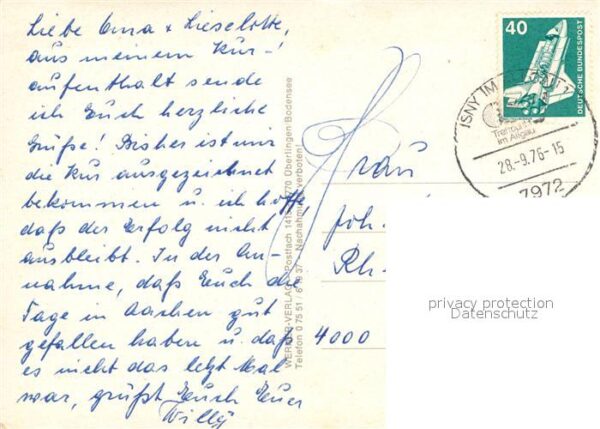 Liebe Oma & Lieselotte,
aus meinem Kur-!
aufenthalt sende
ich Euch herzliche
Grüße! Bisher ist mir
die Kur ausgezeichnet
bekommen u. ich hoffe,
daß der Erfolg nicht
ausbleibt. In der An-
nahme, daß Euch die
Tage in Aachen gut
gefallen haben u. daß
es nicht das letzte Mal
war, grüßt Euch Euer
Willy
WERNER-VERLAG Postfach 141 7770 Überlingen/Bodensee
Telefon 0 75 51 / 6 19 37 Nachahmung verboten!
40
DEUTSCHE BUNDESPOST
ISNY IM
Treffpunkt
im Allgäu
28.-9.76-15
7972
Frau
Joh.
Rh-
4000
privacy protection
Datenschutz